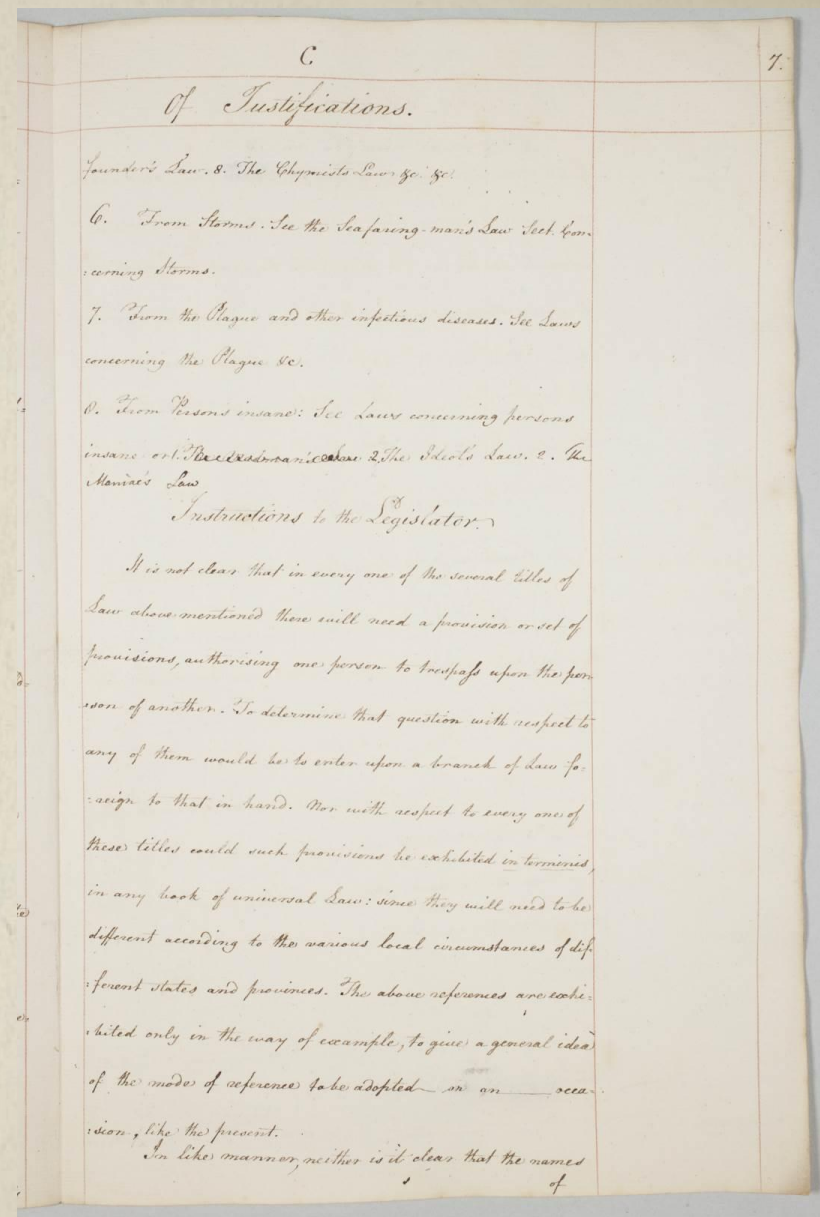 C
7.
Of Justifications.
founder's Law. 8. The Chymists Law &c. &c.
6. From Storms. See the Seafaring-man's Law Sect. Con-
:cerning Storms.
7. From the Plague and other infectious diseases. See Laws
concerning the Plague &c.
8. From Persons insane: See Laws concerning persons
insane or 1. 2 The Ideot's Law. 2. The
Maniac's Law
Instructions to the Legislator.
It is not clear that in every one of the several titles of
Law above-mentioned there will need a provision or set of
provisions, authorising one person to trespass upon the per
:son of another. To determine that question with respect to
any of them would be to enter upon a branch of Law fo-
:reign to that in hand. Nor with respect to every one of
these titles could such provisions be exhibited in terminis,
in any book of universal Law: since they will need to be
different according to the various local circumstances of dif-
:ferent states and provinces. The above references are exhi-
:bited only in the way of example, to give a general idea
of the mode of reference to be adopted on an occa-
:sion, like the present.
In like manner, neither is it clear that the names
of